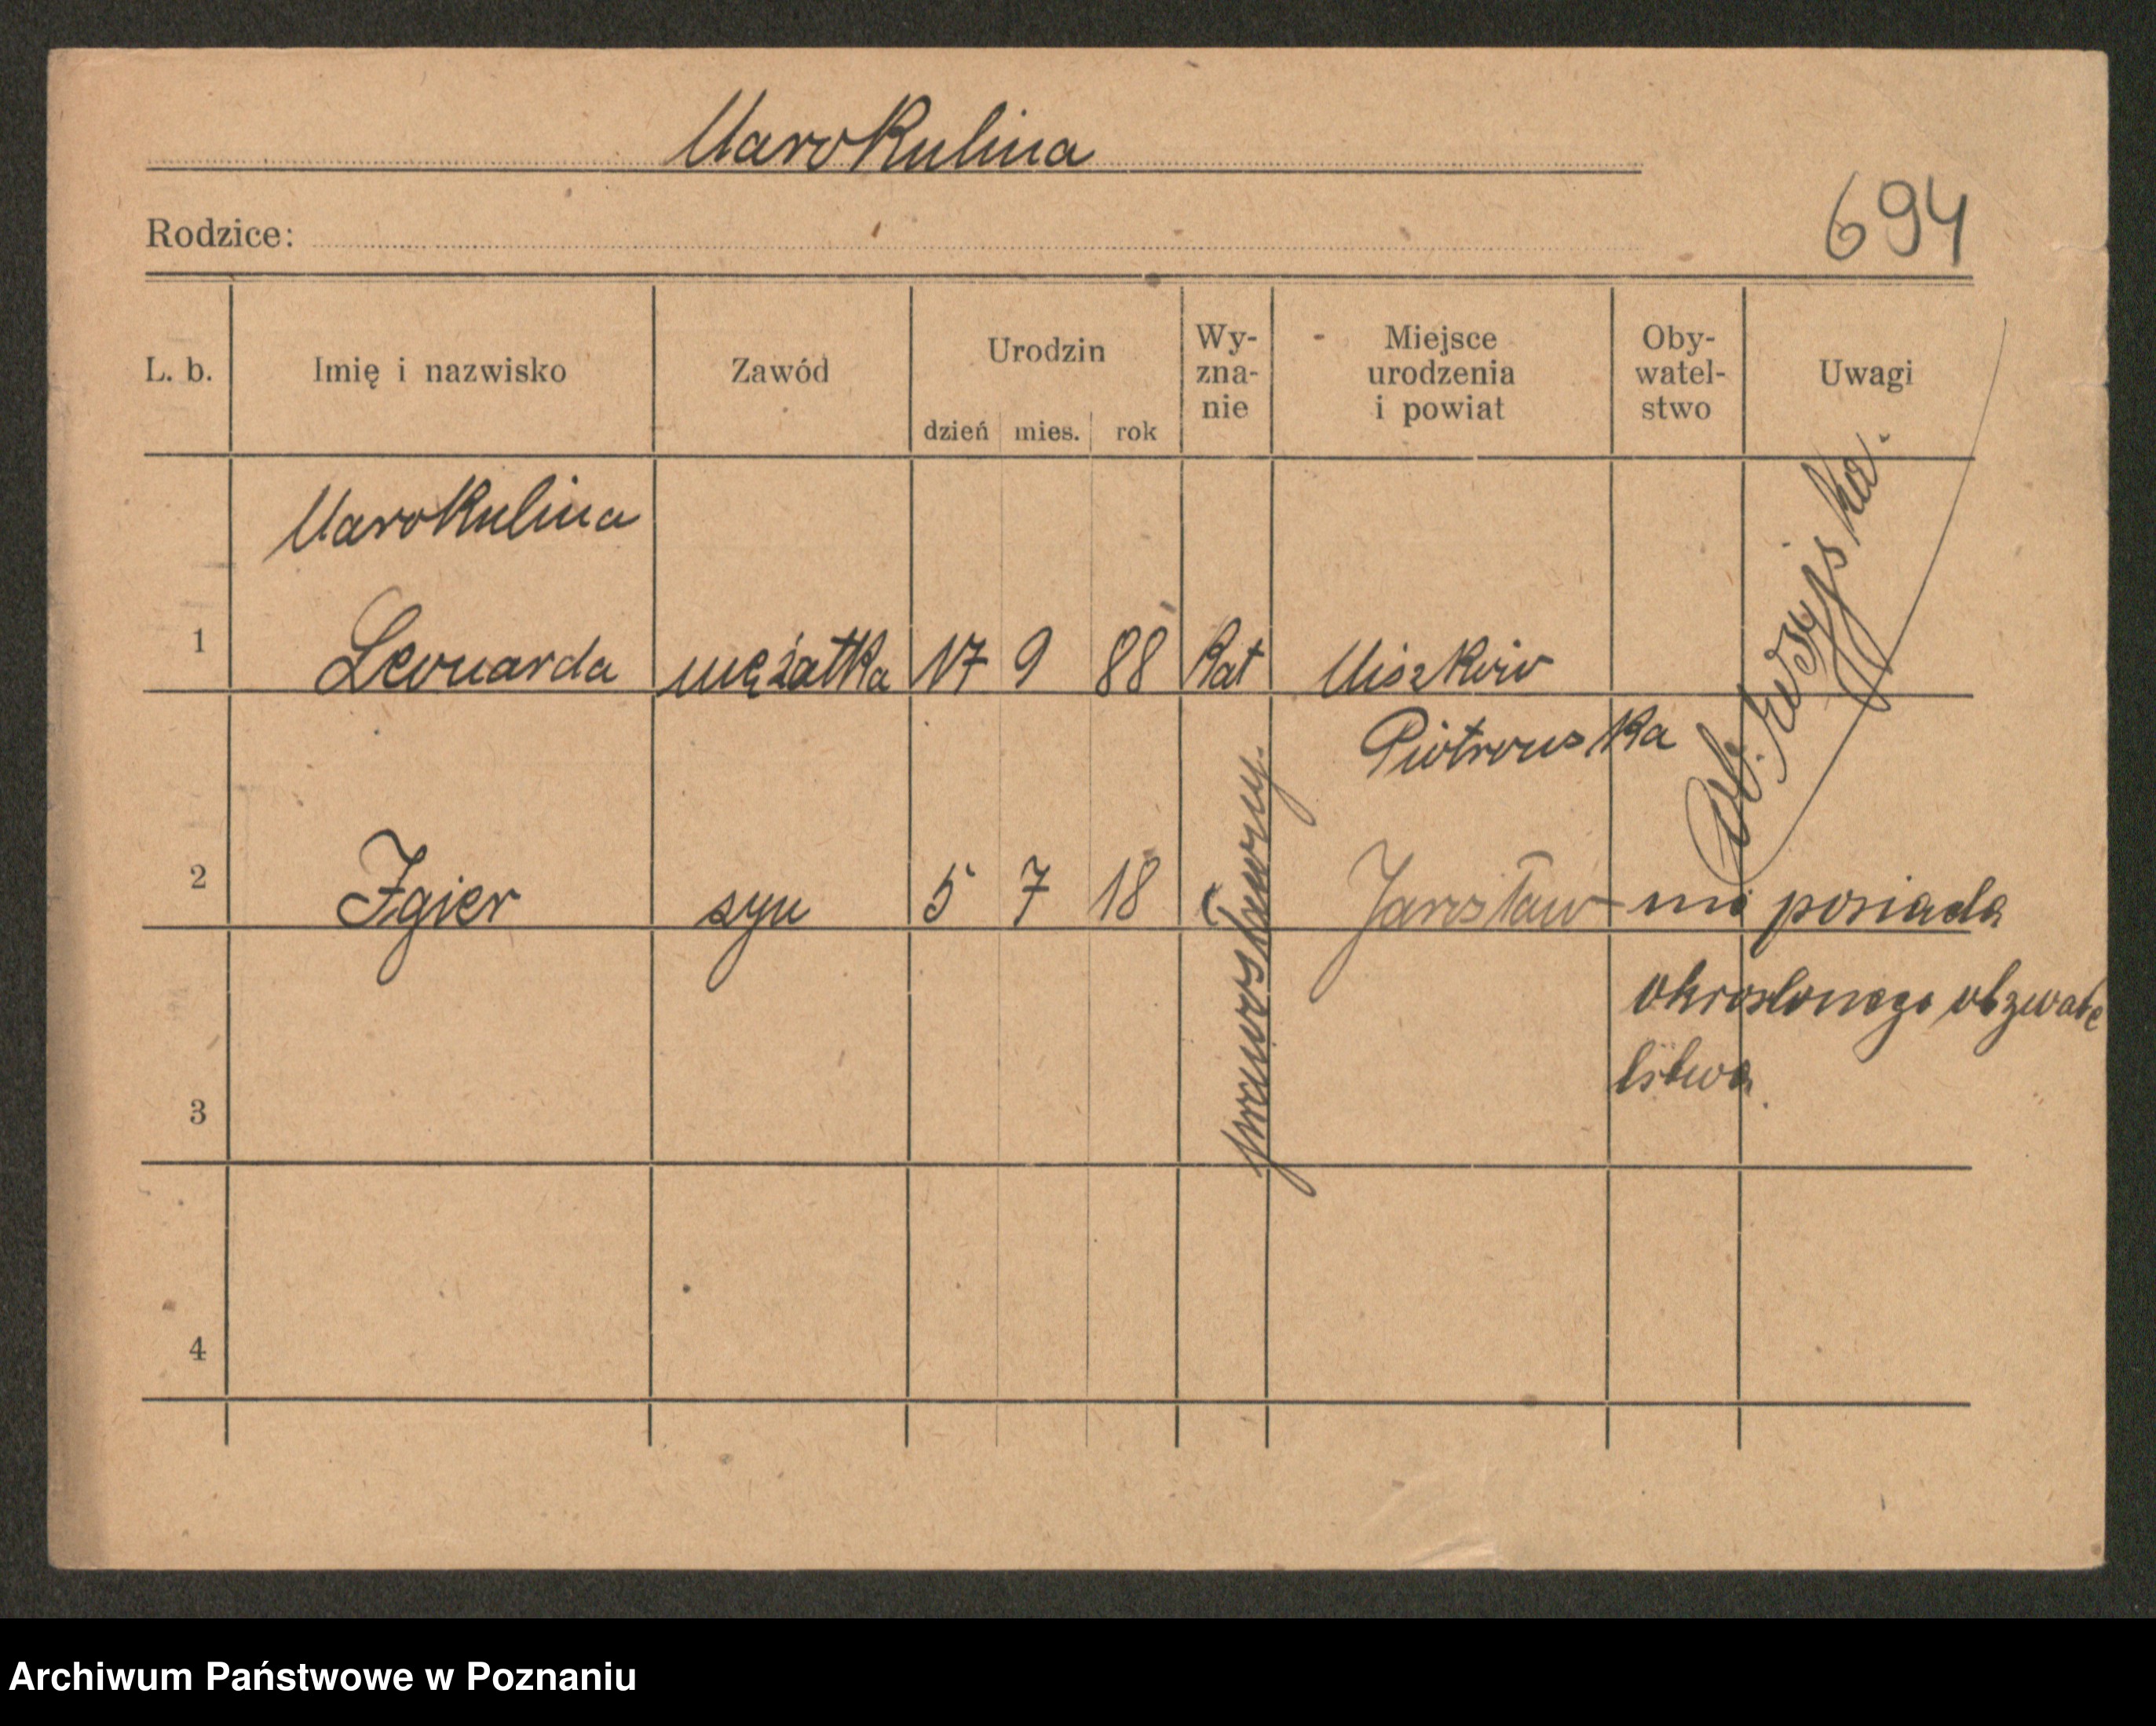 Marokulina
694
Rodzice:
L. b.
Imię i nazwisko
Zawód
Urodzin
dzień mies. rok
Wy-
zna-
nie
Miejsce
urodzenia
i powiat
Oby-
watel-
stwo
Uwagi
Marokulina
1 Leonarda mężatka 17 9 88 Kat Miszkow
Piotrowska
Ob. rosyjska.
2 Igier syn 5 7 18 Jarosław nie posiada
prawosławny.
określonego obywate
lstwa.
3
4
Archiwum Państwowe w Poznaniu